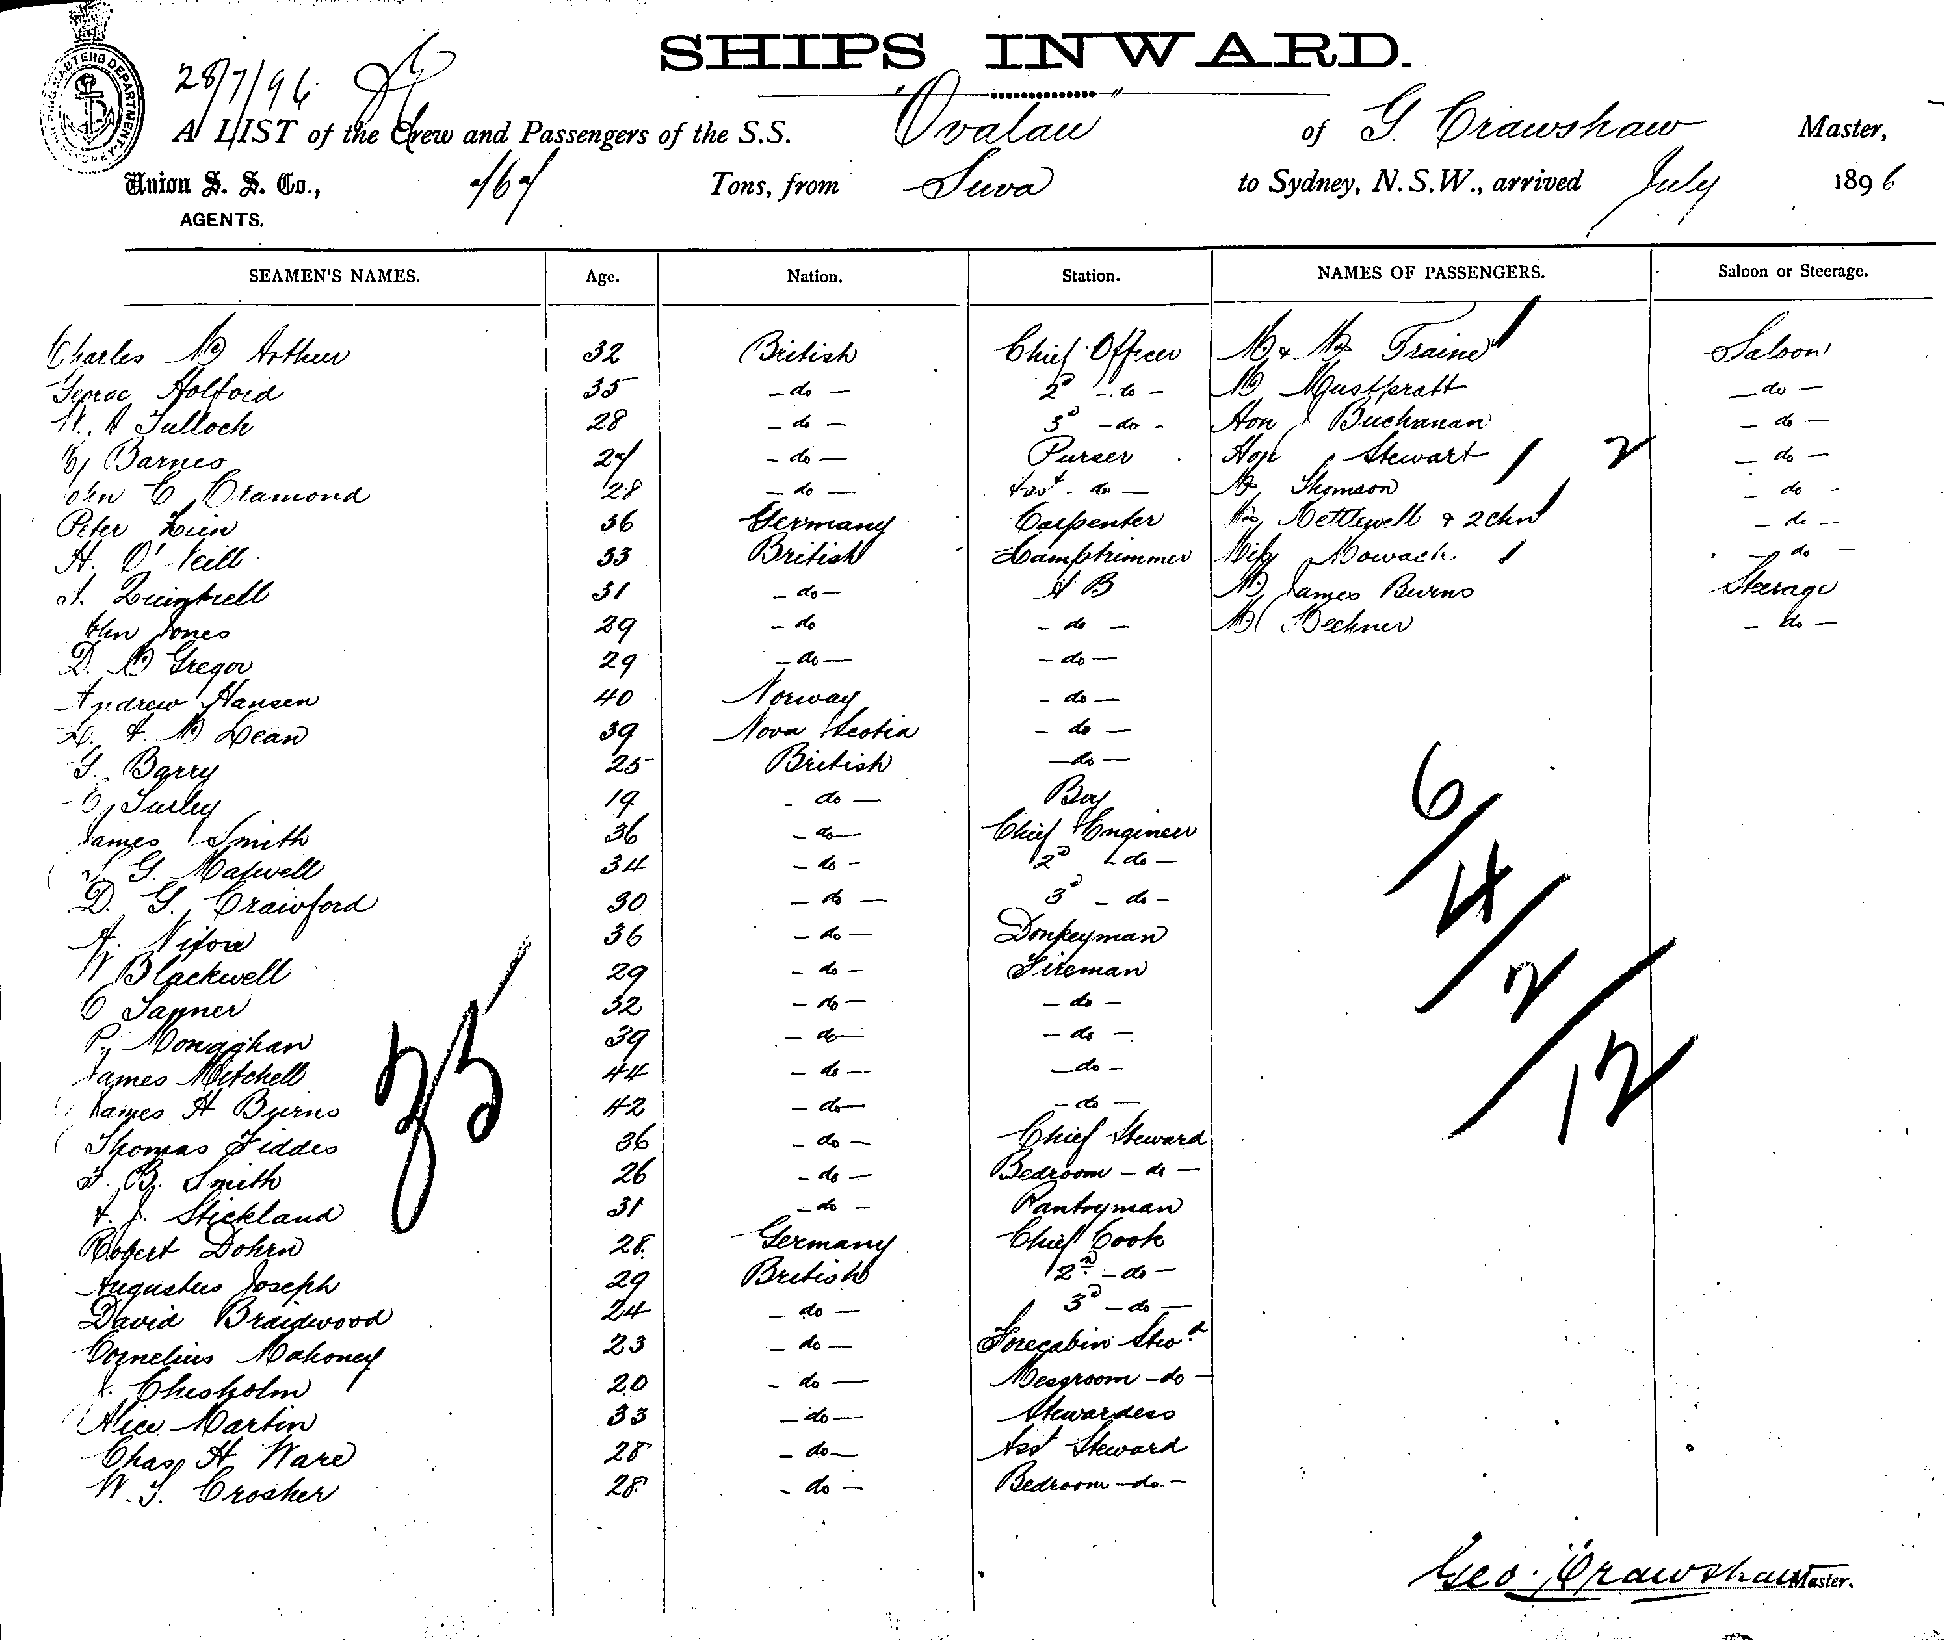 SHIPS INWARD.
28/7/96
A LIST of the Crew and Passengers of the S.S. "Ovalau" of G. Crawshaw Master,
Union S. S. Co., 767 Tons, from Suva to Sydney, N.S.W., arrived July 1896
AGENTS.
SEAMEN'S NAMES. Age. Nation. Station. NAMES OF PASSENGERS. Saloon or Steerage.
Charles Mc Arthur 32 British Chief Officer Mr & Mrs Traine Saloon
George Holford 35 - do - 2d - do - Mr Mustpratt - do -
Tulloch 28 - do - 3d - do - Hon J Buchanan - do -
E, Barnes 27 - do - Purser Hon Stewart 2 - do -
John C, Cramond 28 - do - Asst - do - Mr Thomson - do -
Peter Lien 36 Germany Carpenter Mrs Nettlewell & 2 chn - do -
H. O'Neill 33 British Lamptrimmer Miss Mowach - do -
Quintrell 31 - do - A B Mr James Burns Steerage
John Jones 29 - do - do - Mr Beckner - do -
D. Mc Gregor 29 - do - - do -
Andrew Hansen 40 Norway - do -
Mc Lean 39 Nova Scotia - do -
G. Barry 25 British - do -
Turley 19 - do - Boy
James Smith 36 - do - Chief Engineer
G. Maxwell 34 - do - 2d - do -
D. G. Crawford 30 - do - 3d - do -
A. Nixon 36 - do - Donkeyman
W Blackwell 29 - do - Fireman
C Tanner 32 - do - - do -
P. Monaghan 39 - do - - do -
James Mitchell 44 - do - - do -
James H Byrns 42 - do - - do -
Thomas Fiddes 36 - do - Chief Steward
F. B. Smith 26 - do - Bedroom - do -
J. Stickland 31 - do - Pantryman
Robert Dohrn 28 Germany Chief Cook
Augustus Joseph 29 British 2nd - do -
David Braidwood 24 - do - 3d - do -
Cornelius Mahoney 23 - do - Forecabin Stwd
J. Chisholm 20 - do - Messroom - do -
Alice Martin 33 - do - Stewardess
Chas H Ware 28 - do - Asst Steward
W. S. Crosher 28 - do - Bedroom - do -
35
6
4
2
12
Geo. Crawshaw Master.